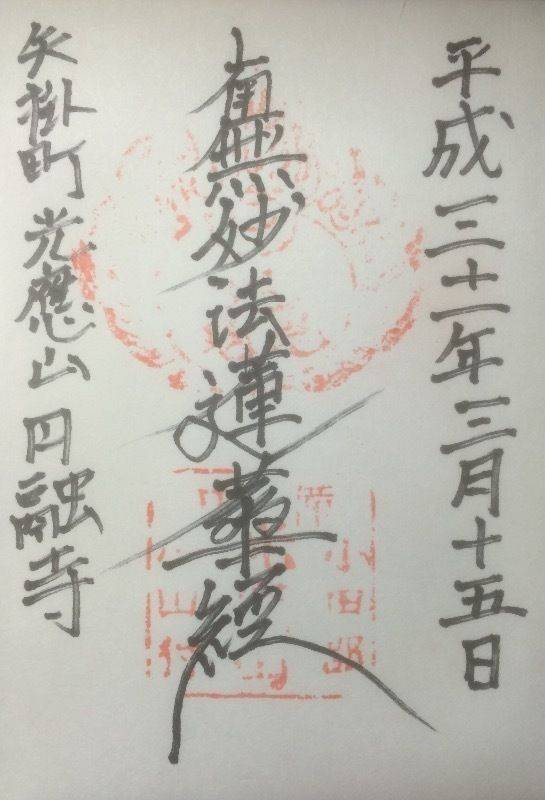 平成三十一年三月十五日
南無妙法蓮華経
矢掛町 光應山 円融寺
小田郡